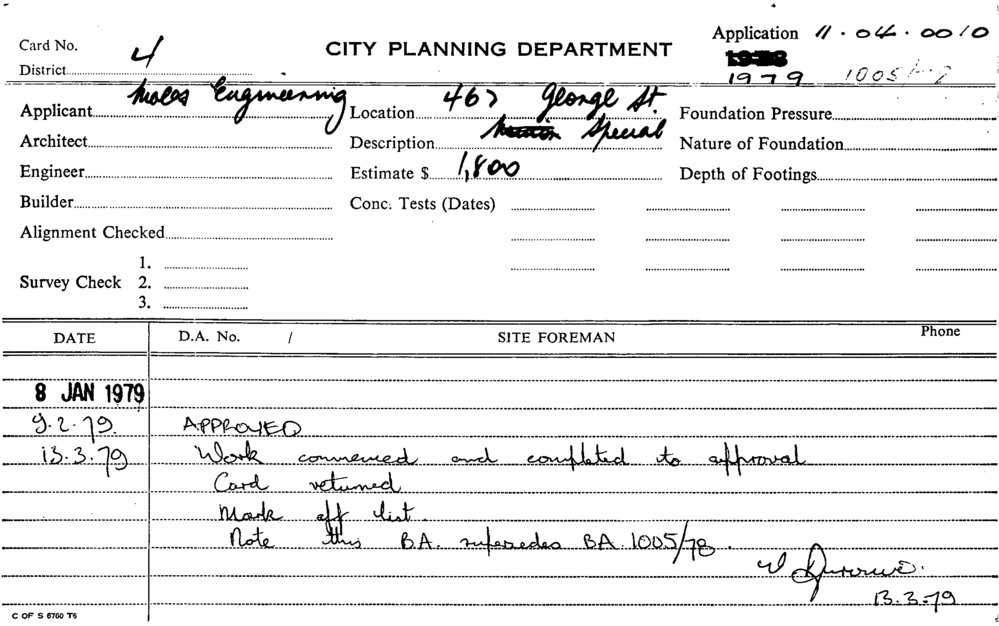 Card No. 4
District
CITY PLANNING DEPARTMENT
Application 11.04.0010
1978
1979 1005/
Applicant Engineering
Location 467 George St.
Foundation Pressure
Architect
Description Special
Nature of Foundation
Engineer
Estimate $ 1,800
Depth of Footings
Builder
Conc. Tests (Dates)
Alignment Checked
Survey Check 1.
2.
3.
DATE D.A. No. / SITE FOREMAN Phone
8 JAN 1979
9.2.79. APPROVED
13.3.79 Work commenced and completed to approval
Card returned
Mark off list.
Note this B.A. supersedes BA 1005/78.
13.3.79
C OF S 6760 T6